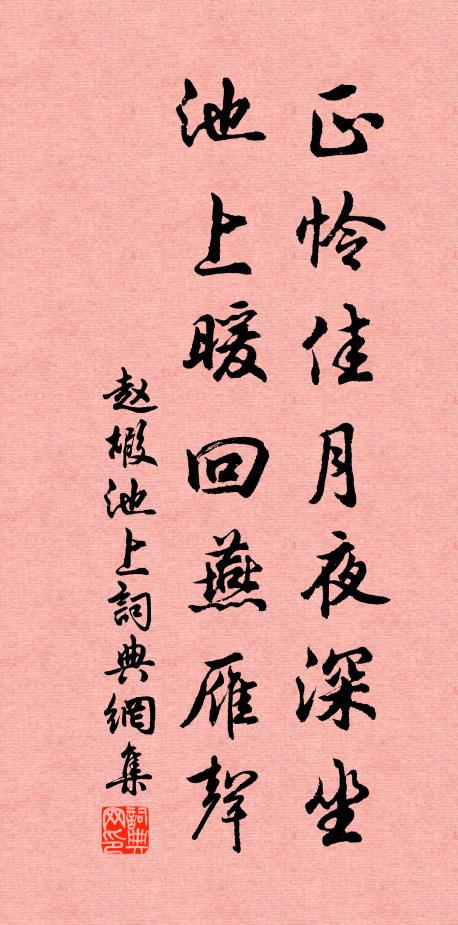 正怜佳月夜深坐
池上暖回燕雁聲
赵嘏池上詞典網集
詞典网印